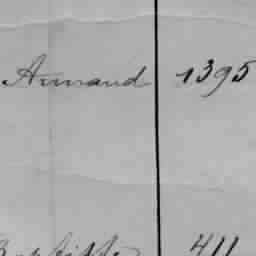 Armand 1395
411